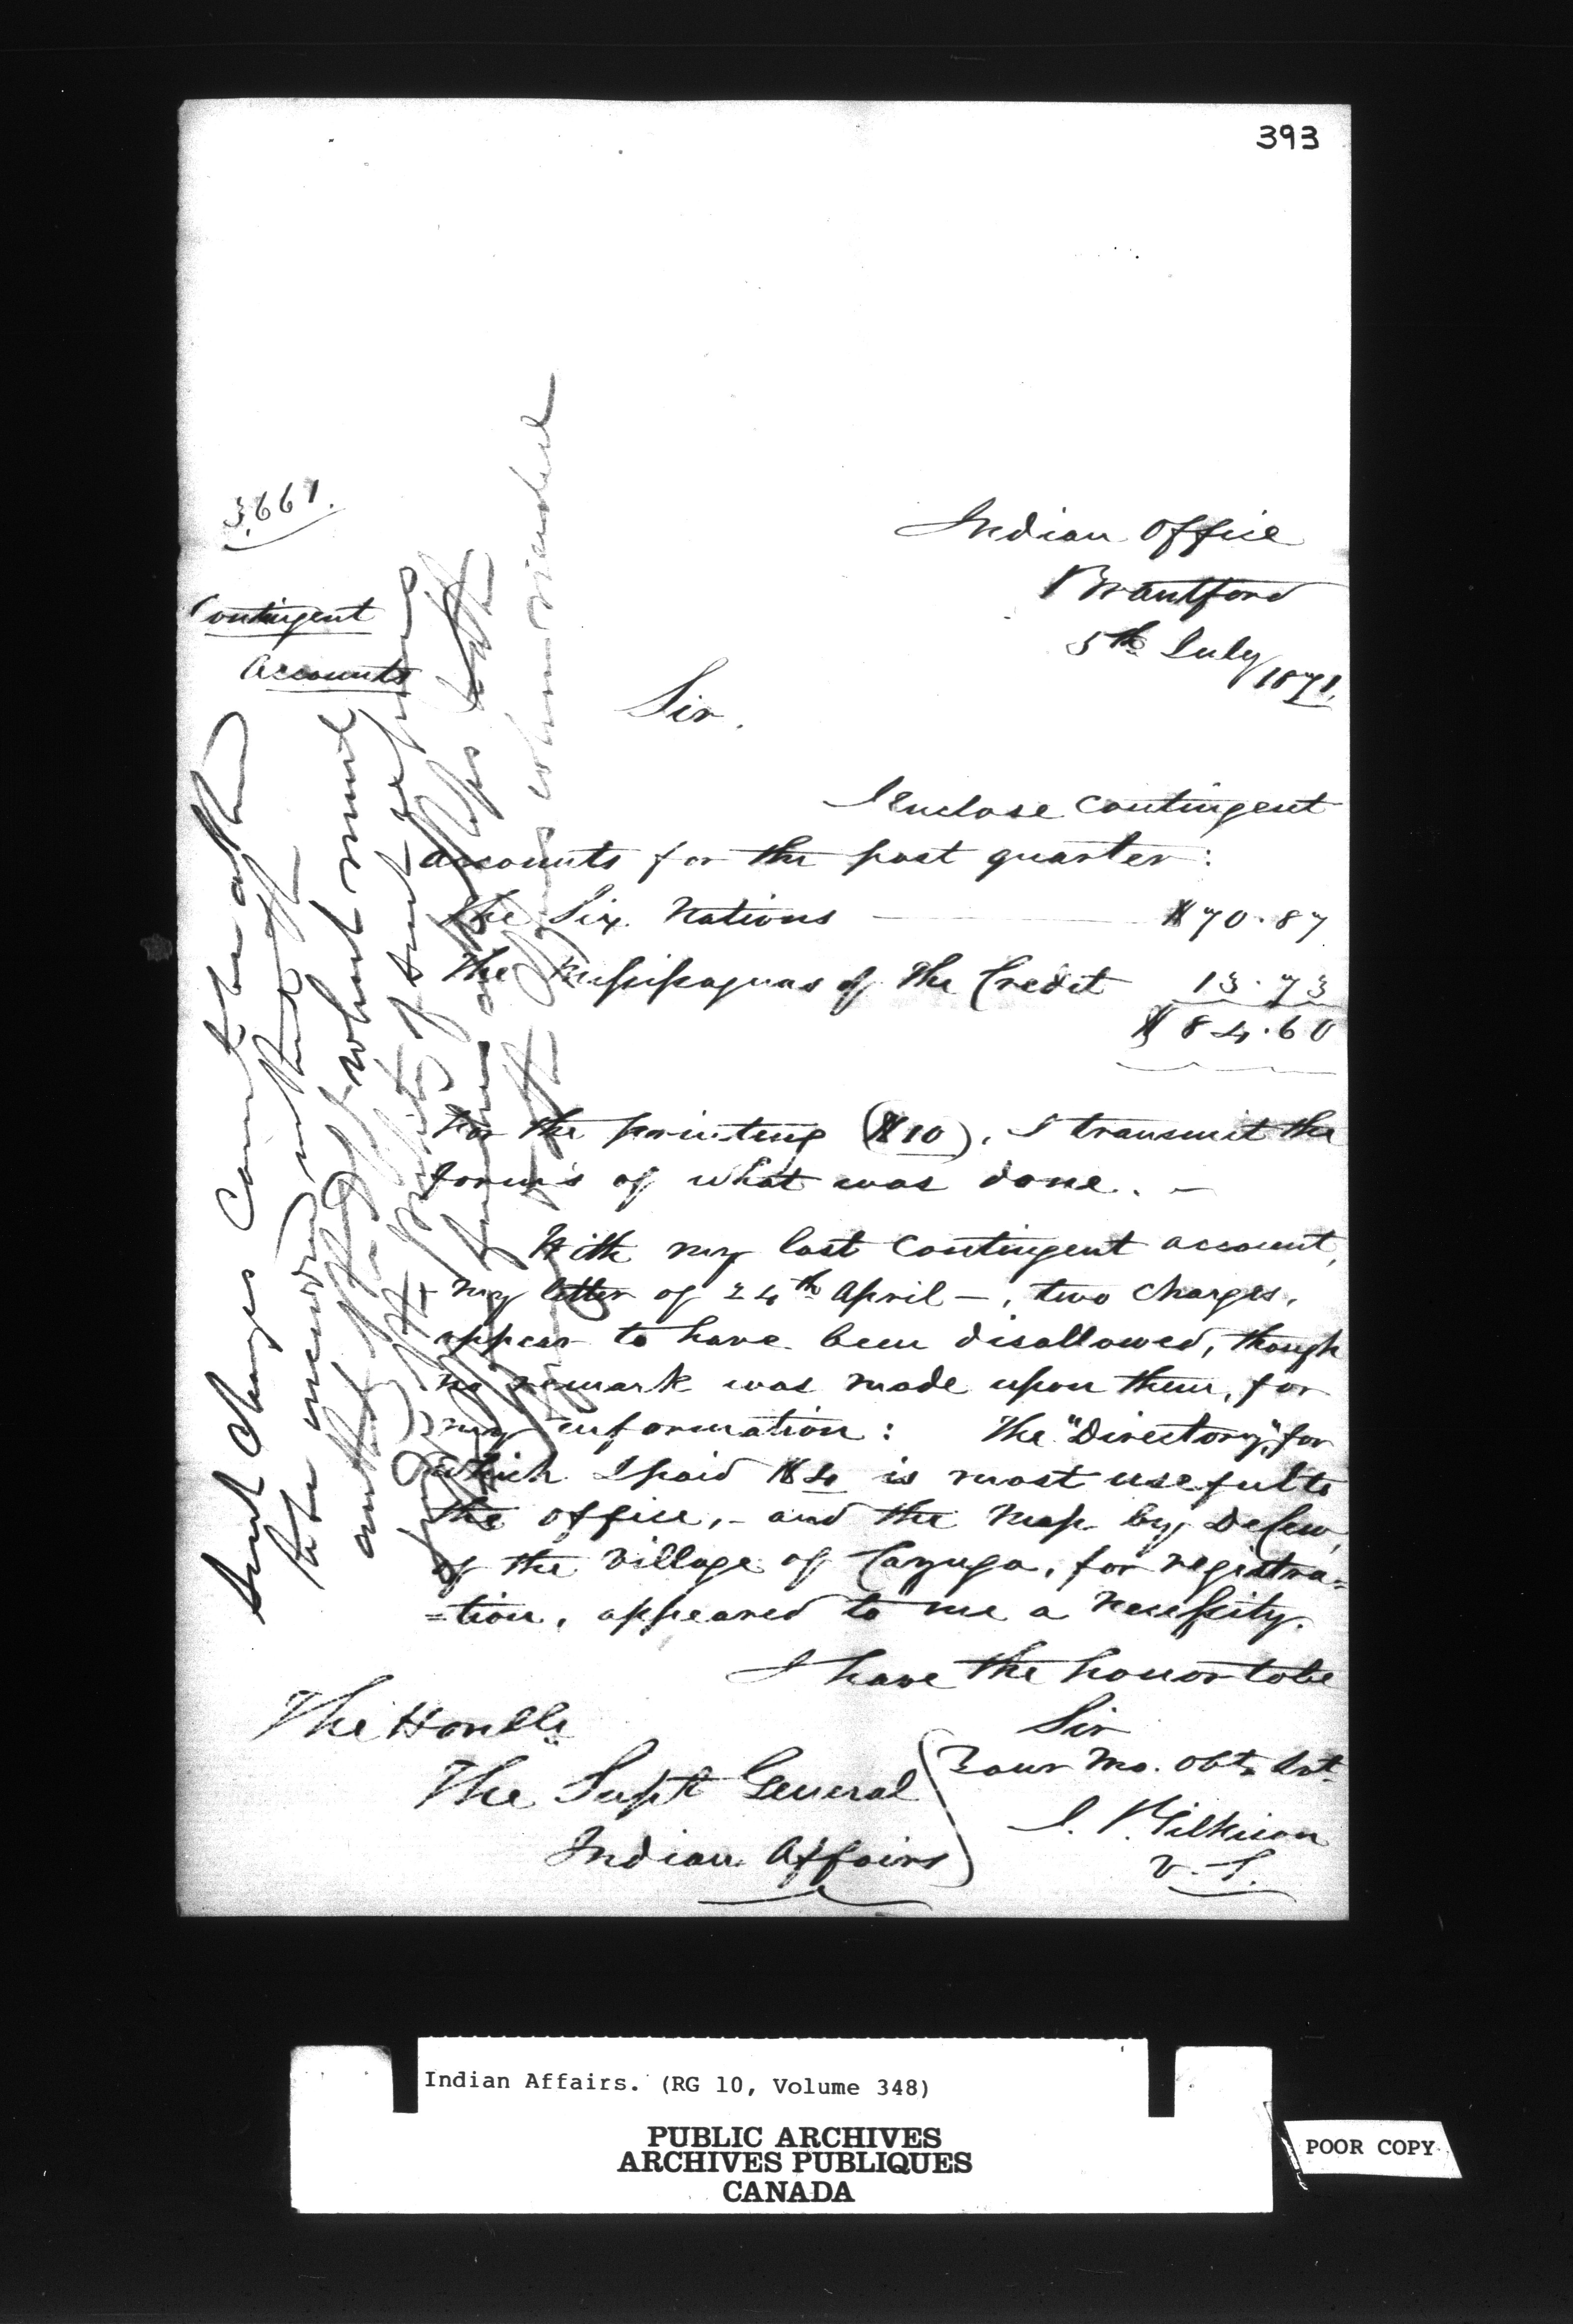 393
3661.
Contingent
Accounts
Indian Office
Brantford
5th July
1871.
Sir.
I enclose Contingent
accounts for the past quarter:
The Six Nations $70.87
The Missisaguas of the Credit 13.73
$84.60
For the printing ($10), I transmit the
forms of what was done. —
With my last Contingent account,
my letter of 24th April —, two charges,
appear to have been disallowed, though
no remark was made upon them, for
my information: The "Directory", for
which I paid $4 is most useful to
the office, - and the Map by DeCew,
of the Village of Cayuga, for registra=
=tion, appeared to me a necessity.
I have the honor to be
Sir
Your Mo. Obt. Svt.
J. T. Gilkison
V. S.
The Honble
The Supt General
Indian Affairs
Such charges cannot be
to be incurred without
what must
of such
recommended
Indian Affairs. (RG 10, Volume 348)
PUBLIC ARCHIVES
ARCHIVES PUBLIQUES
CANADA
POOR COPY